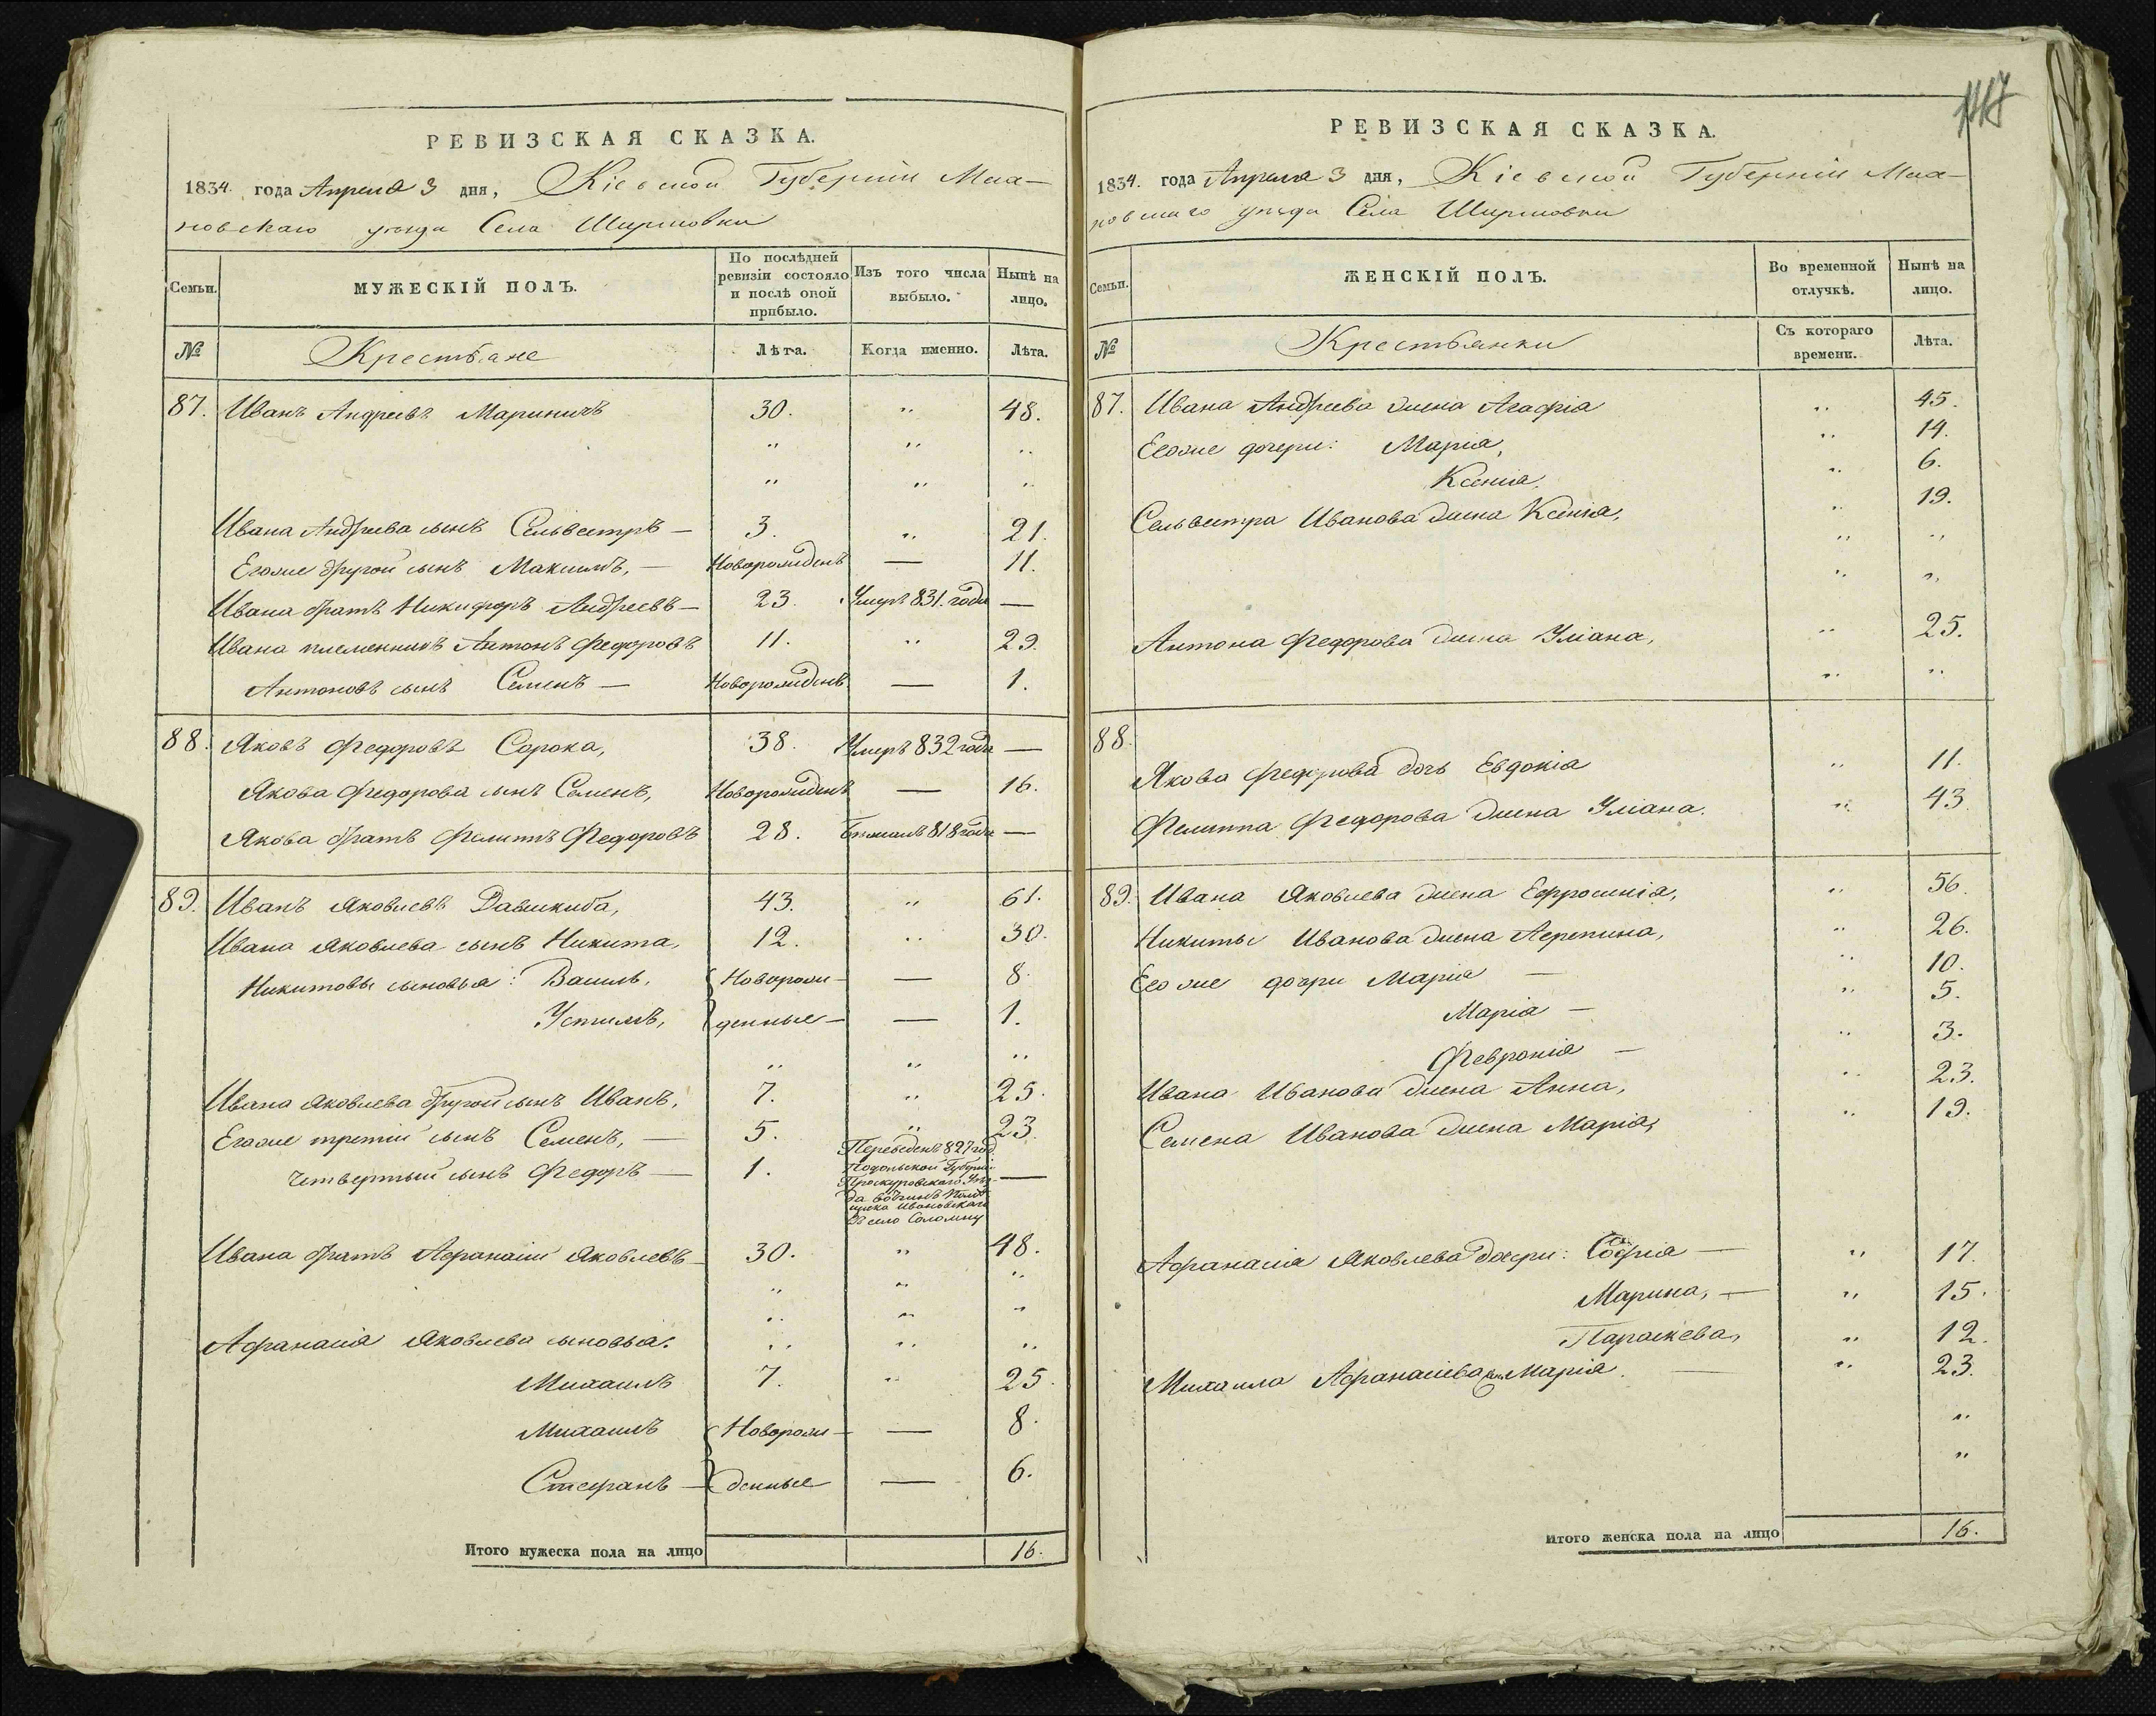 РЕВИЗСКАЯ СКАЗКА.
1834. года Апреля 3 дня, Кіевской Губерніи Мах-
новскаго уѣзда Села Ширмовки
Семьи.
МУЖЕСКІЙ ПОЛЪ.
По послѣдней ревизіи состояло и послѣ оной прибыло.
Изъ того числа выбыло.
Нынѣ на лицо.
№ Крестьяне Лѣта. Когда именно. Лѣта.
87. Иванъ Андреевъ Мариничъ 30. " 48.
" " "
" " "
Ивана Андреева сынъ Сельвестръ — 3. " 21.
Егоже другой сынъ Максимъ, — Новорожденъ — 11.
Ивана братъ Никифоръ Андреевъ — 23. Умеръ 831. года —
Ивана племенникъ Антонъ Федоровъ 11. " 29.
Антоновъ сынъ Семенъ — Новорожденъ — 1.
88. Яковъ Федоровъ Сорока, 38. Умеръ 832 года —
Якова Федорова сынъ Семенъ, Новорожденъ — 16.
Якова братъ Филиппъ Федоровъ 28. Бежалъ 818 года —
89. Иванъ Яковлевъ 43. " 61.
Ивана Яковлева сынъ Никита, 12. " 30.
Никитовы сыновья: Василь, Новорож- — 8.
Устимъ, денные — — 1.
" " "
Ивана Яковлева другой сынъ Иванъ, 7. " 25.
Егоже третій сынъ Семенъ, — 5. " 23.
четвертый сынъ Федоръ — 1. Переведенъ 827 год. —
Подольской Губерніи
Проскуровскаго Уѣз-
да
Ивановскаго
В село Соломну
Ивана братъ Афанасій Яковлевъ 30. " 48.
" " "
" " "
Афанасія Яковлева сыновья: " " "
Михаилъ 7. " 25.
Михаилъ Новорож- — 8.
Стефанъ — денные — 6.
Итого мужеска пола на лицо 16.
РЕВИЗСКАЯ СКАЗКА.
1834. года Апреля 3 дня, Кіевской Губерніи Мах-
новскаго уѣзда Села Ширмовки
Семьи.
ЖЕНСКІЙ ПОЛЪ.
Во временной отлучкѣ.
Нынѣ на лицо.
№ Крестьянки Съ котораго времени. Лѣта.
87. Ивана Андреева жена Агафія " 45.
Егоже дочери: Марія, " 14.
Ксенія. " 6.
Сельвестра Иванова жена Ксенія, " 19.
" "
" "
Антона Федорова жена Уліана, " 25.
" "
88.
Якова Федорова дочь Евдокія " 11.
Филиппа Федорова жена Уліана. " 43.
89. Ивана Яковлева жена Ефросинія, " 56.
Никиты Иванова жена Агрепина, " 26.
Егоже дочери Марія — " 10.
Марія — " 5.
Февронія — " 3.
Ивана Иванова жена Анна, " 23.
Семена Иванова жена Марія, " 19.
Афанасія Яковлева дочери: Софія — " 17.
Марина, — " 15.
Параскева, " 12.
Михаила Афанасіева жена Марія. — " 23.
"
"
Итого женска пола на лицо 16.